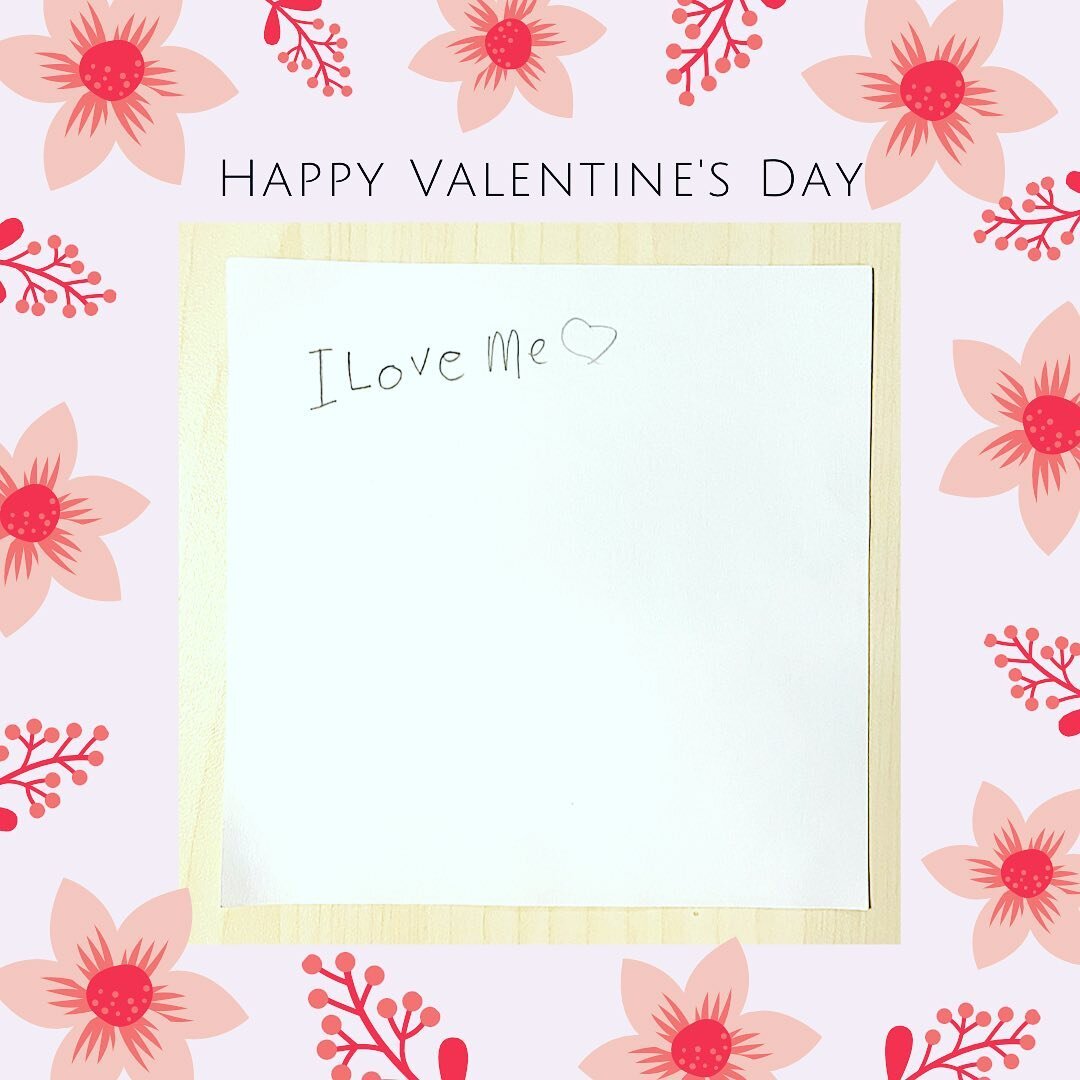 Happy Valentine's Day
I Love Me